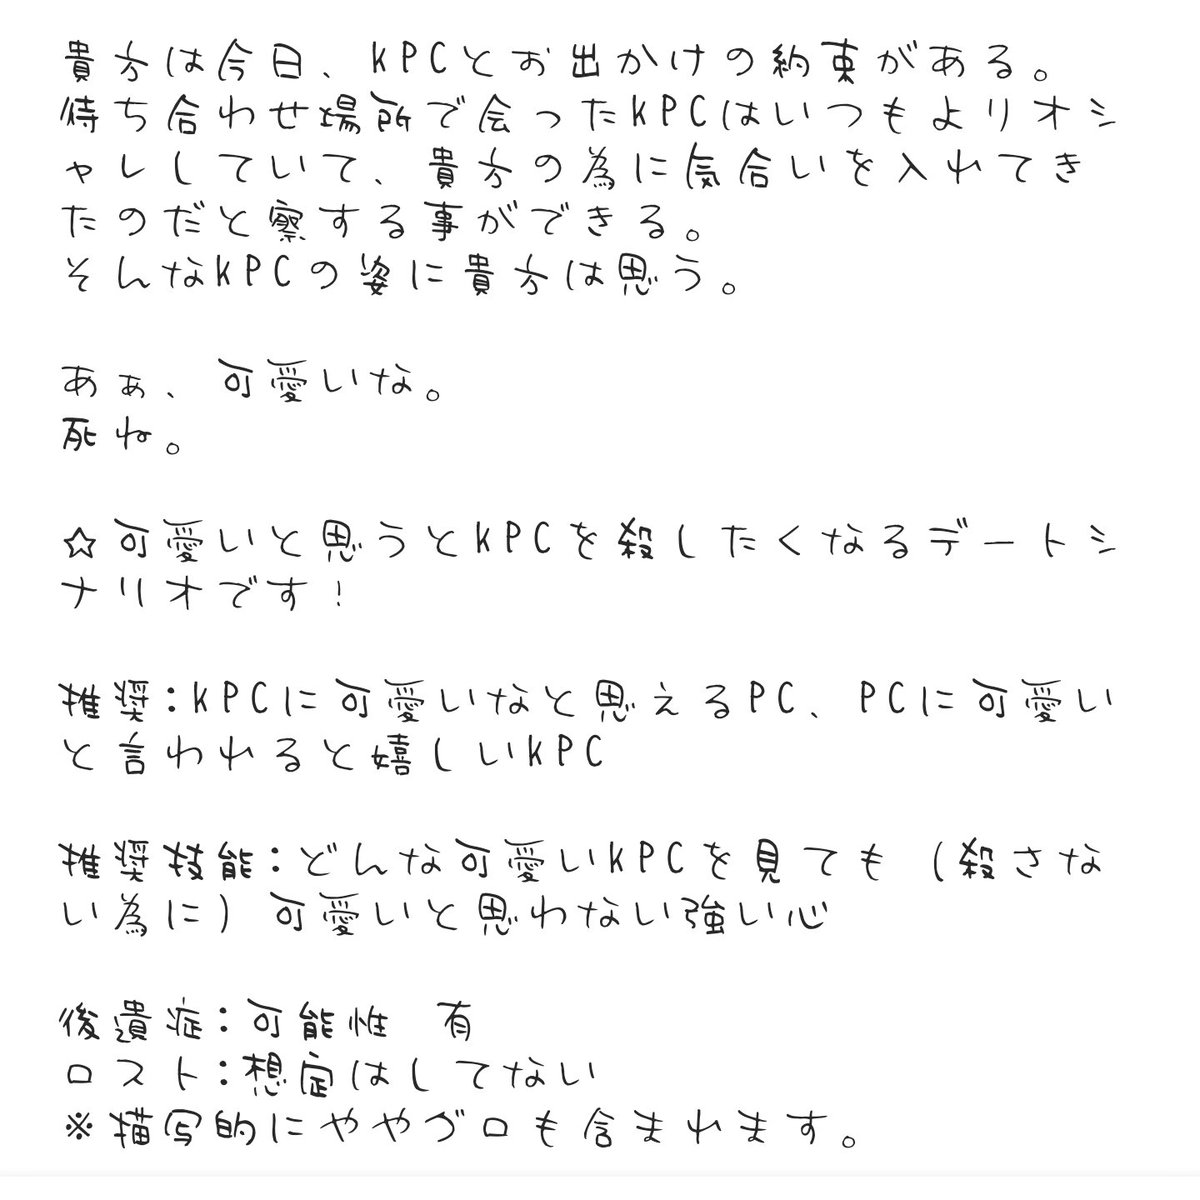 貴方は今日、KPCとお出かけの約束がある。
待ち合わせ場所で会ったKPCはいつもよりオシ
ャレしていて、貴方の為に気合いを入れてき
たのだと察する事ができる。
そんなKPCの姿に貴方は思う。
あぁ、可愛いな。
死ね。
☆可愛いと思うとKPCを殺したくなるデートシ
ナリオです！
推奨：KPCに可愛いなと思えるPC、PCに可愛い
と言われると嬉しいKPC
推奨技能：どんな可愛いKPCを見ても（殺さな
い為に）可愛いと思わない強い心
後遺症：可能性　有
ロスト：想定はしてない
※描写的にややグロも含まれます。